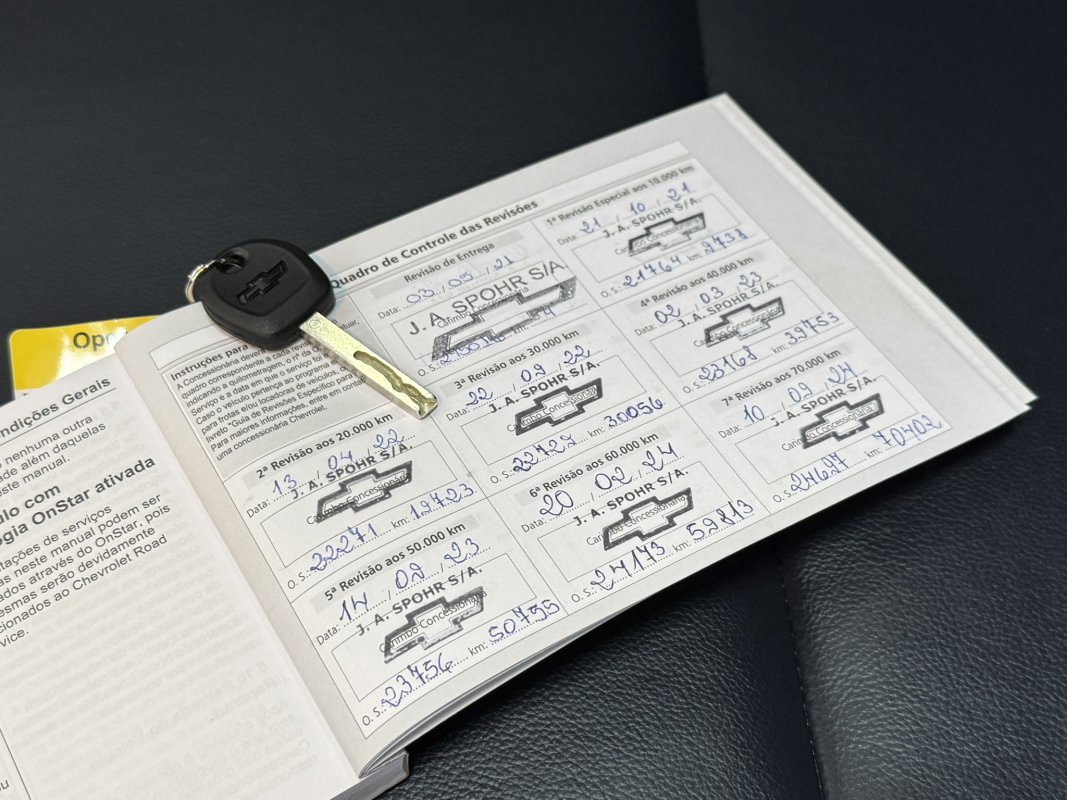 Op
ndições Gerais
o nenhuma outra
ade além daquelas
ste manual.
ulo com
ogia OnStar ativada
tações de serviços
as neste manual podem ser
ados através do OnStar, pois
esmas serão devidamente
cionados ao Chevrolet Road
vice.
Quadro de Controle das Revisões
Instruções para
A Concessionária deverá
quadro correspondente a cada revi
indicando a quilometragem, o nº da O
Serviço e a data em que o serviço foi e
Caso o veículo pertença ao programa e
para frotas e/ou locadoras de veículos, co
livreto "Guia de Revisões Específico para
Para maiores informações, entre em contat
uma concessionária Chevrolet.
Revisão de Entrega
Data: 03 / 05 / 21
J. A. SPOHR S/A
Carimbo Concessionária
1ª Revisão Especial aos 10.000 km
Data: 21 / 10 / 21
J. A. SPOHR S/A.
Carimbo Concessionária
O. S.: 21764 km: 9738
2ª Revisão aos 20.000 km
Data: 13 / 04 / 22
J. A. SPOHR S/A.
Carimbo Concessionária
O. S.: 22271 km: 19723
3ª Revisão aos 30.000 km
Data: 22 / 09 / 22
J. A. SPOHR S/A.
Carimbo Concessionária
O. S.: 22727 km: 30056
4ª Revisão aos 40.000 km
Data: 02 / 03 / 23
J. A. SPOHR S/A.
Carimbo Concessionária
O. S.: 23168 km: 39753
5ª Revisão aos 50.000 km
Data: 14 / 09 / 23
J. A. SPOHR S/A.
Carimbo Concessionária
O. S.: 23756 km: 50755
6ª Revisão aos 60.000 km
Data: 20 / 02 / 24
J. A. SPOHR S/A.
Carimbo Concessionária
O. S.: 24173 km: 59813
7ª Revisão aos 70.000 km
Data: 10 / 09 / 24
J. A. SPOHR S/A.
Carimbo Concessionária
O. S.: 24647 km: 70402